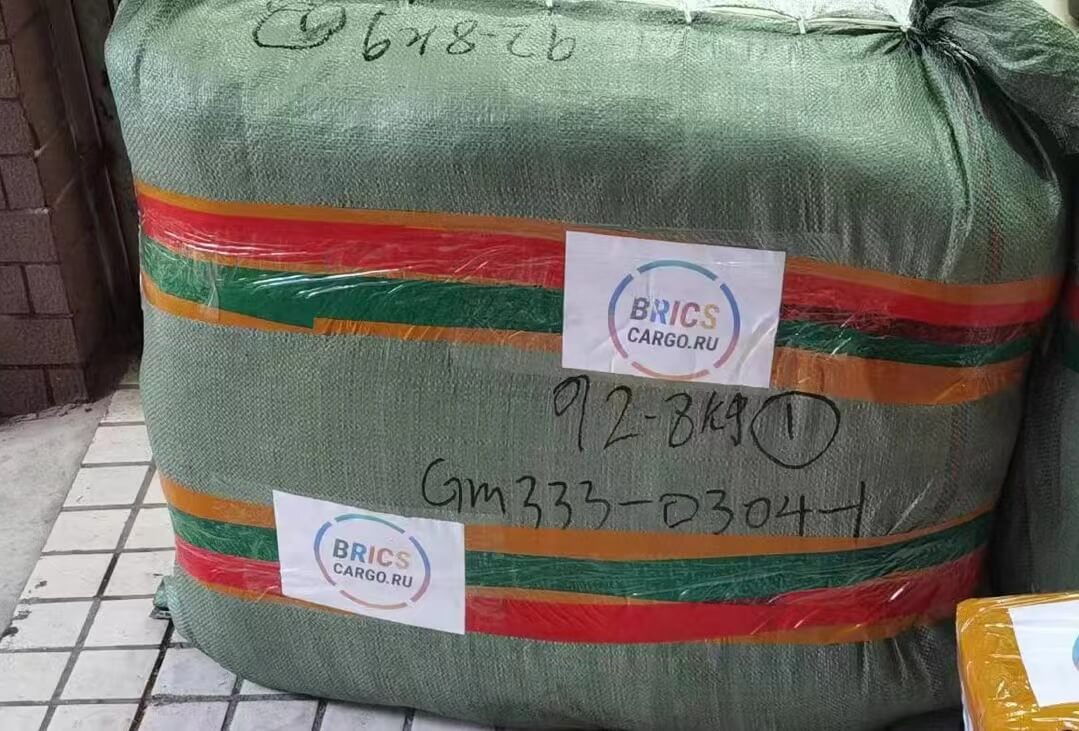 92-8kg ①
BRICS
CARGO.RU
92-8kg ①
Gm333-0304-1
BRICS
CARGO.RU